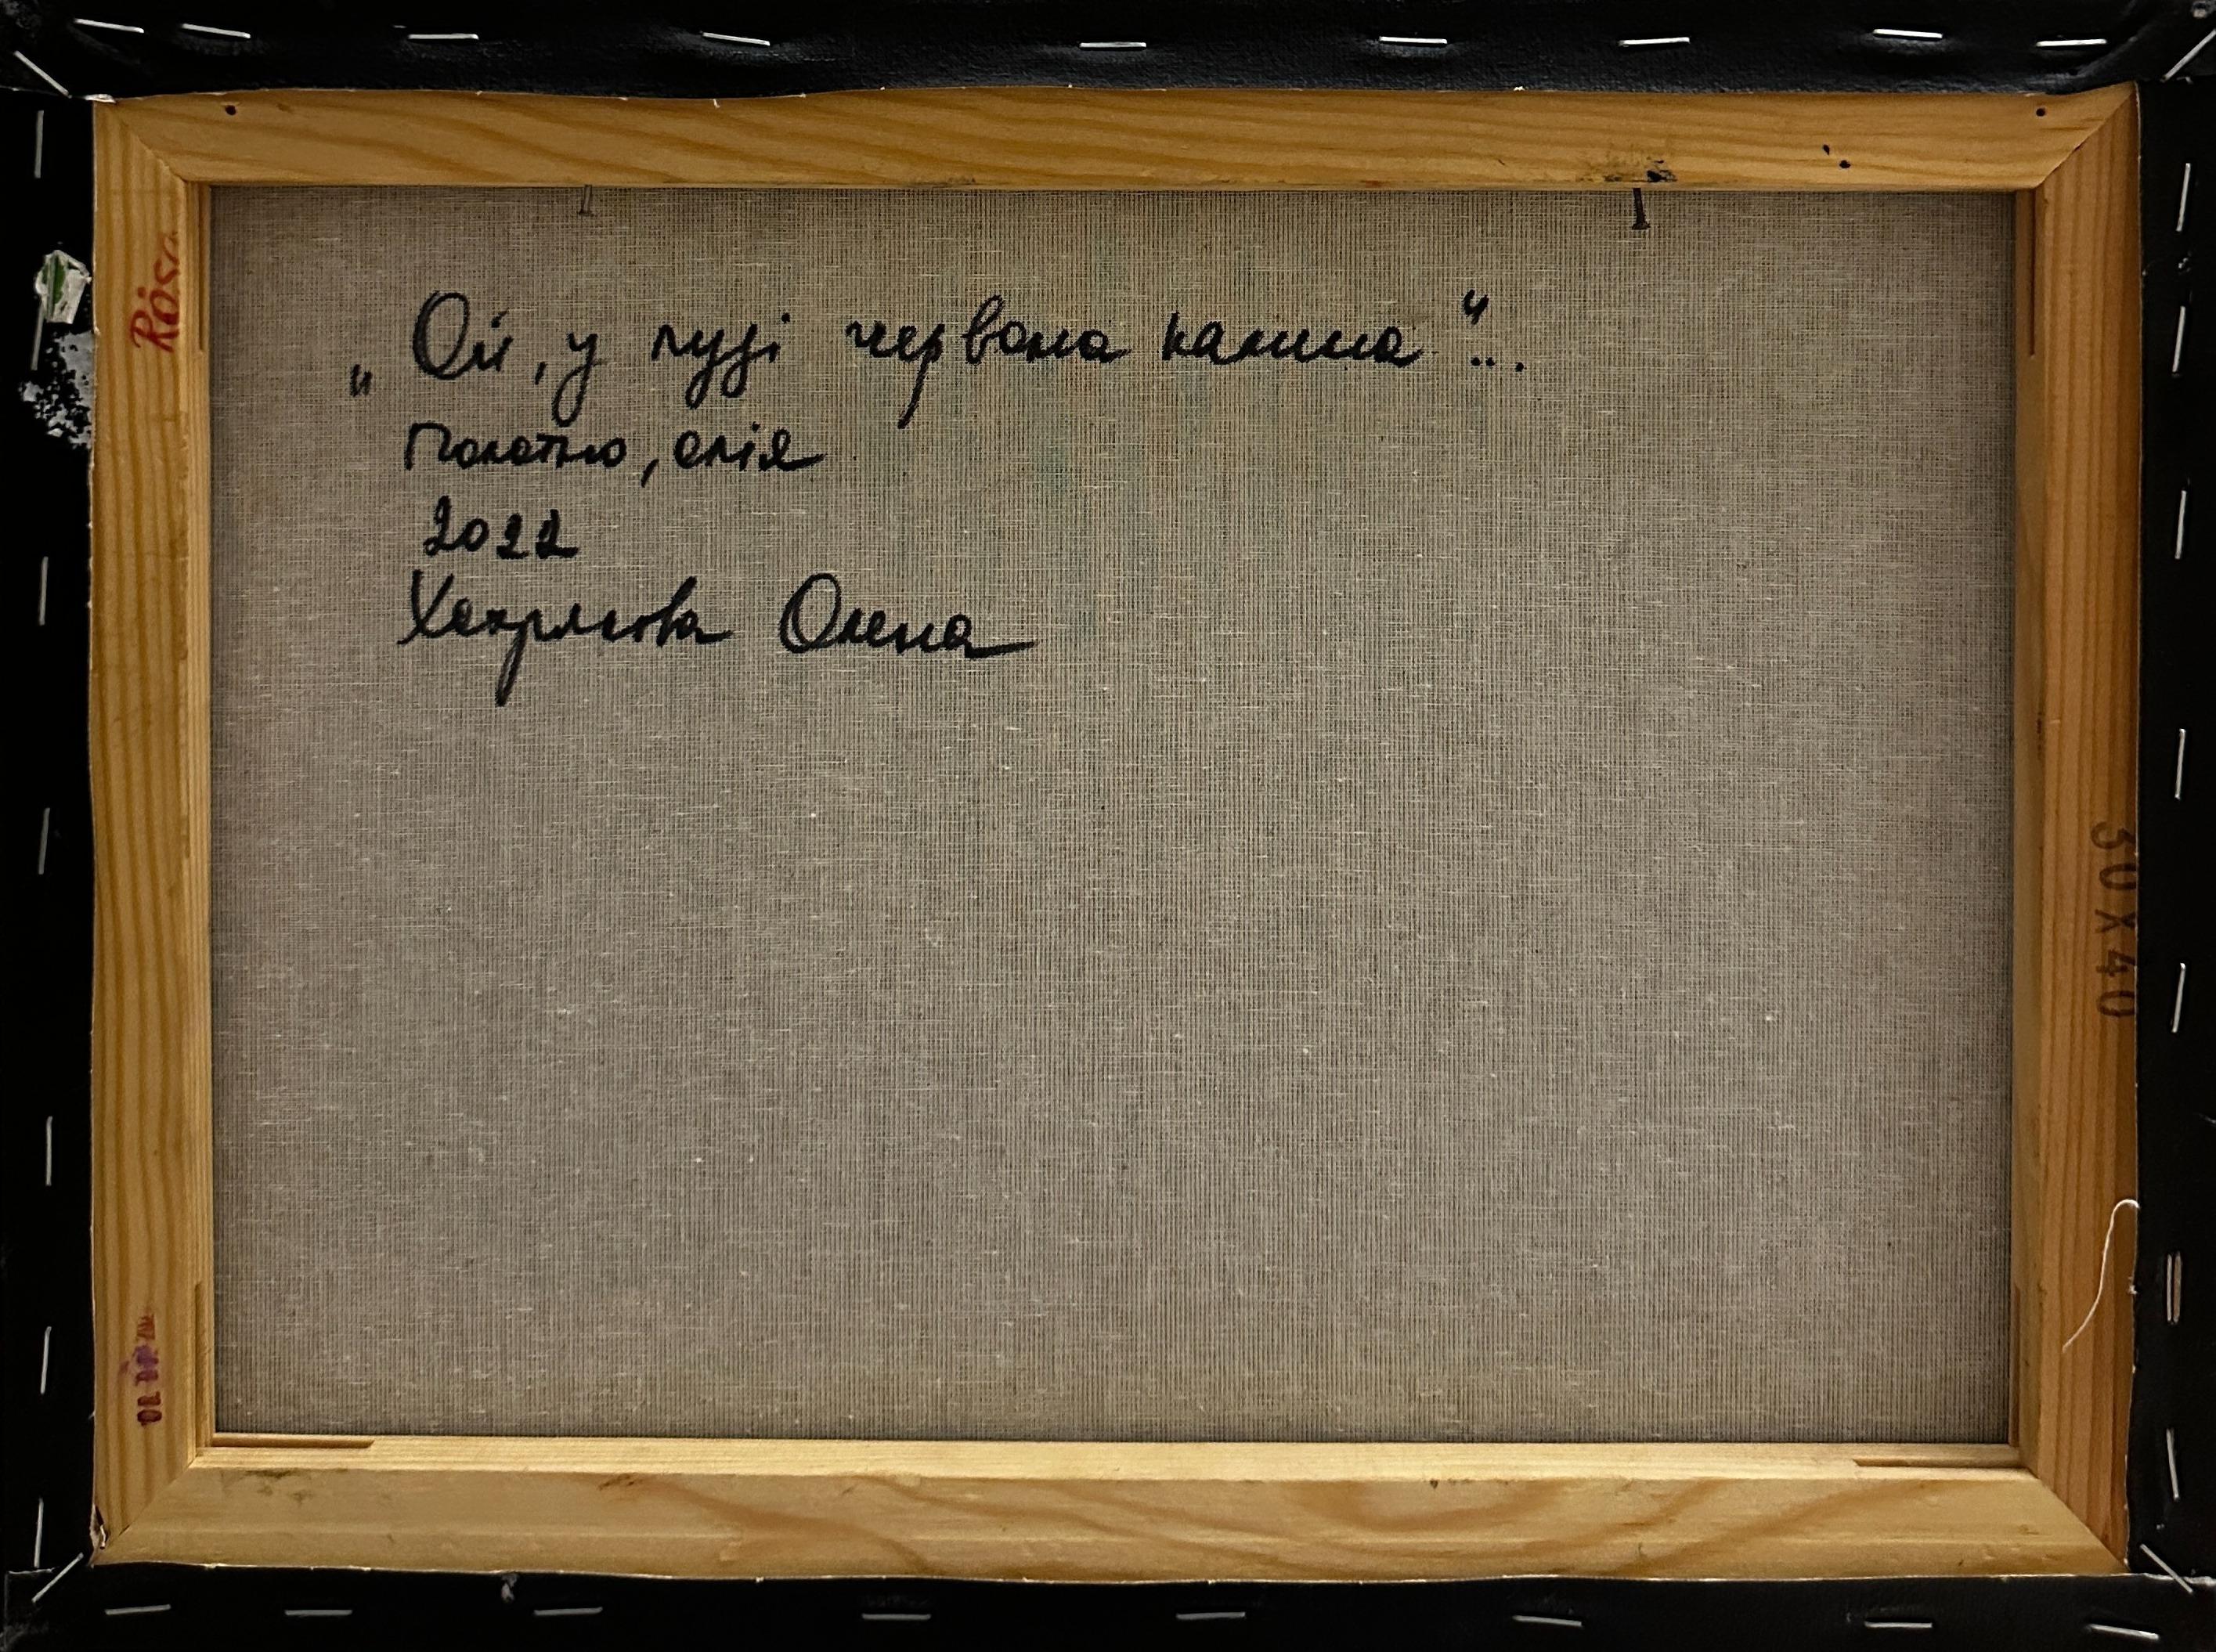 „Ой, у лузі червона калина“...
Полотно, олія
2022
Олена
30 X 40